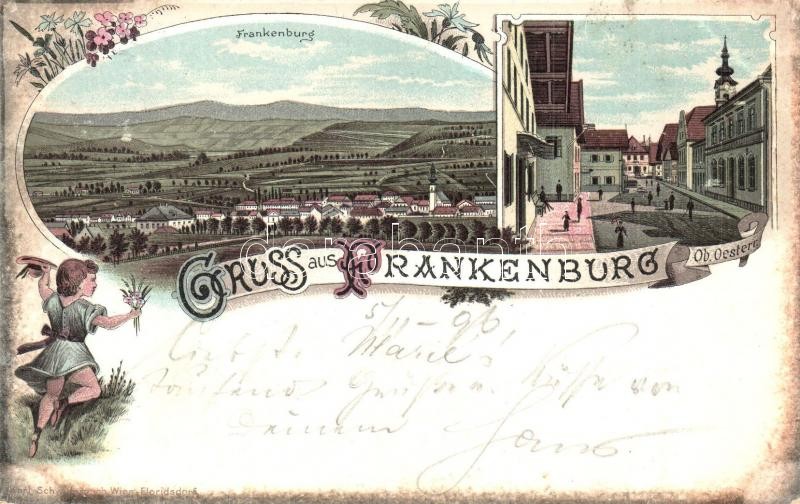 Frankenburg
GRUSS AUS FRANKENBURG
Ob. Oesterr.
5/11 – 96
Liebste Marie!
tausend Grüsse u. Küsse von
Deinem
Wien-Floridsdorf